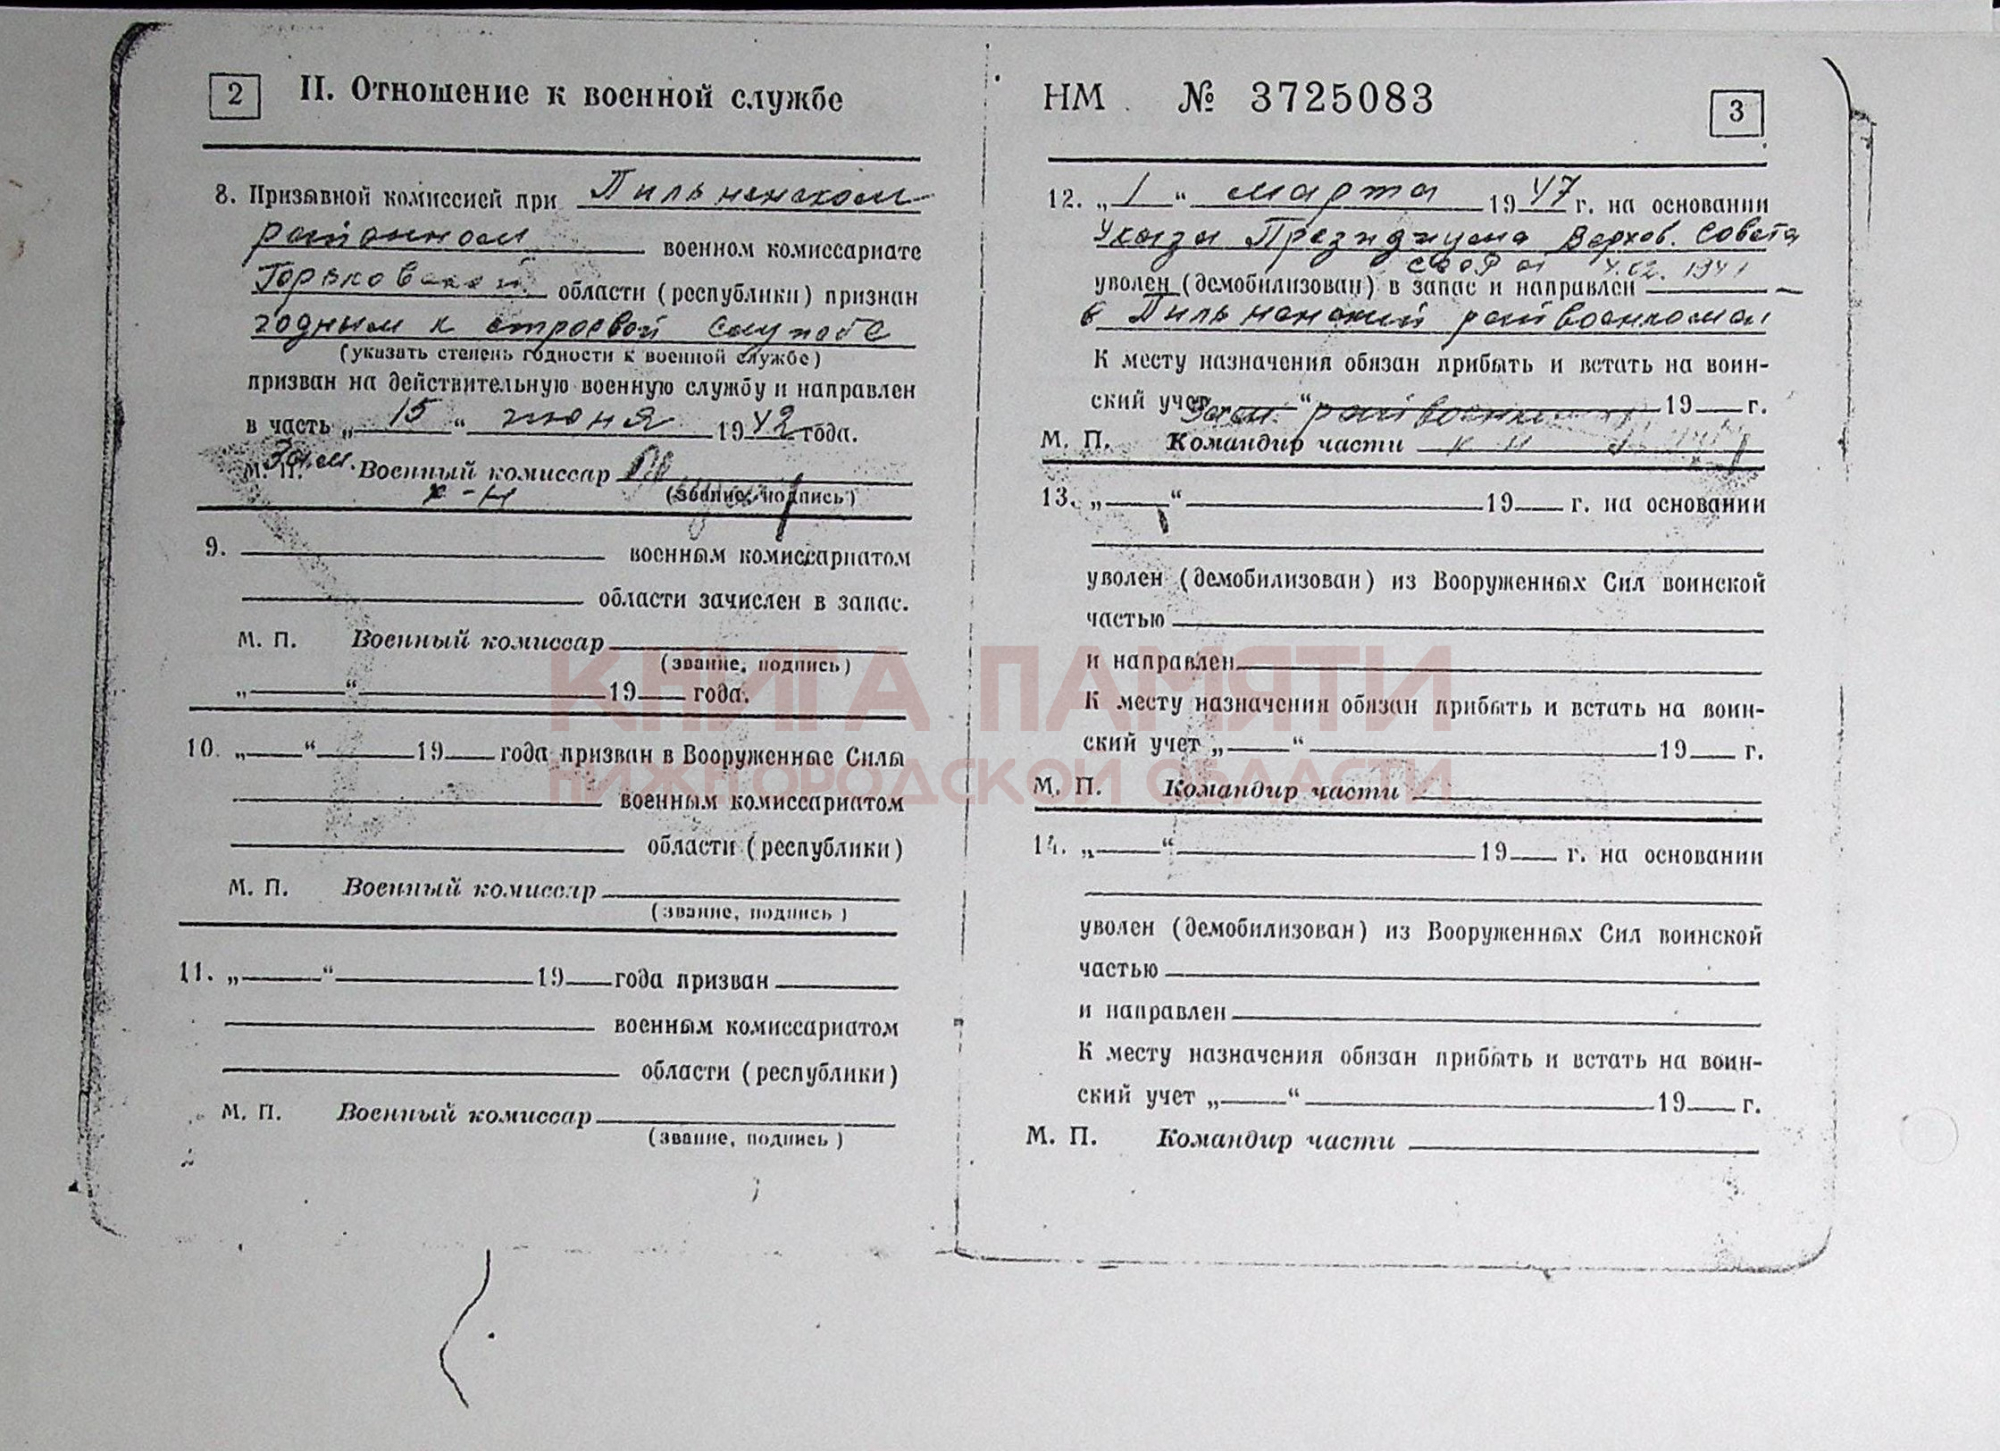 2 II. Отношение к военной службе
8. Призывной комиссией при Пильненском
районном военном комиссариате
Горьковской области (республики) признан
годным к строевой службе
(указать степень годности к военной службе)
призван на действительную военную службу и направлен
в часть „15“ июня 1942 года.
Зам.
М. П. Военный комиссар
к-н (звание, подпись)
9. военным комиссариатом
области зачислен в запас.
М. П. Военный комиссар
(звание, подпись)
„ “ 19 года.
10. „ “ 19 года призван в Вооруженные Силы
военным комиссариатом
области (республики)
М. П. Военный комиссар
(звание, подпись)
11. „ “ 19 года призван
военным комиссариатом
области (республики)
М. П. Военный комиссар
(звание, подпись)
НМ № 3725083 3
12. „1“ марта 1947 г. на основании
Указа Президиума Верхов. Совета
СССР от 4.02.1947
уволен (демобилизован) в запас и направлен
в Пильненский райвоенкомат
К месту назначения обязан прибыть и встать на воин-
ский учет „ “ 19 г.
Зам. райвоенкома
М. П. Командир части к-н
13. „ “ 19 г. на основании
уволен (демобилизован) из Вооруженных Сил воинской
частью
и направлен
К месту назначения обязан прибыть и встать на воин-
ский учет „ “ 19 г.
М. П. Командир части
14. „ “ 19 г. на основании
уволен (демобилизован) из Вооруженных Сил воинской
частью
и направлен
К месту назначения обязан прибыть и встать на воин-
ский учет „ “ 19 г.
М. П. Командир части
КНИГА ПАМЯТИ
НИЖГОРОДСКОЙ ОБЛАСТИ